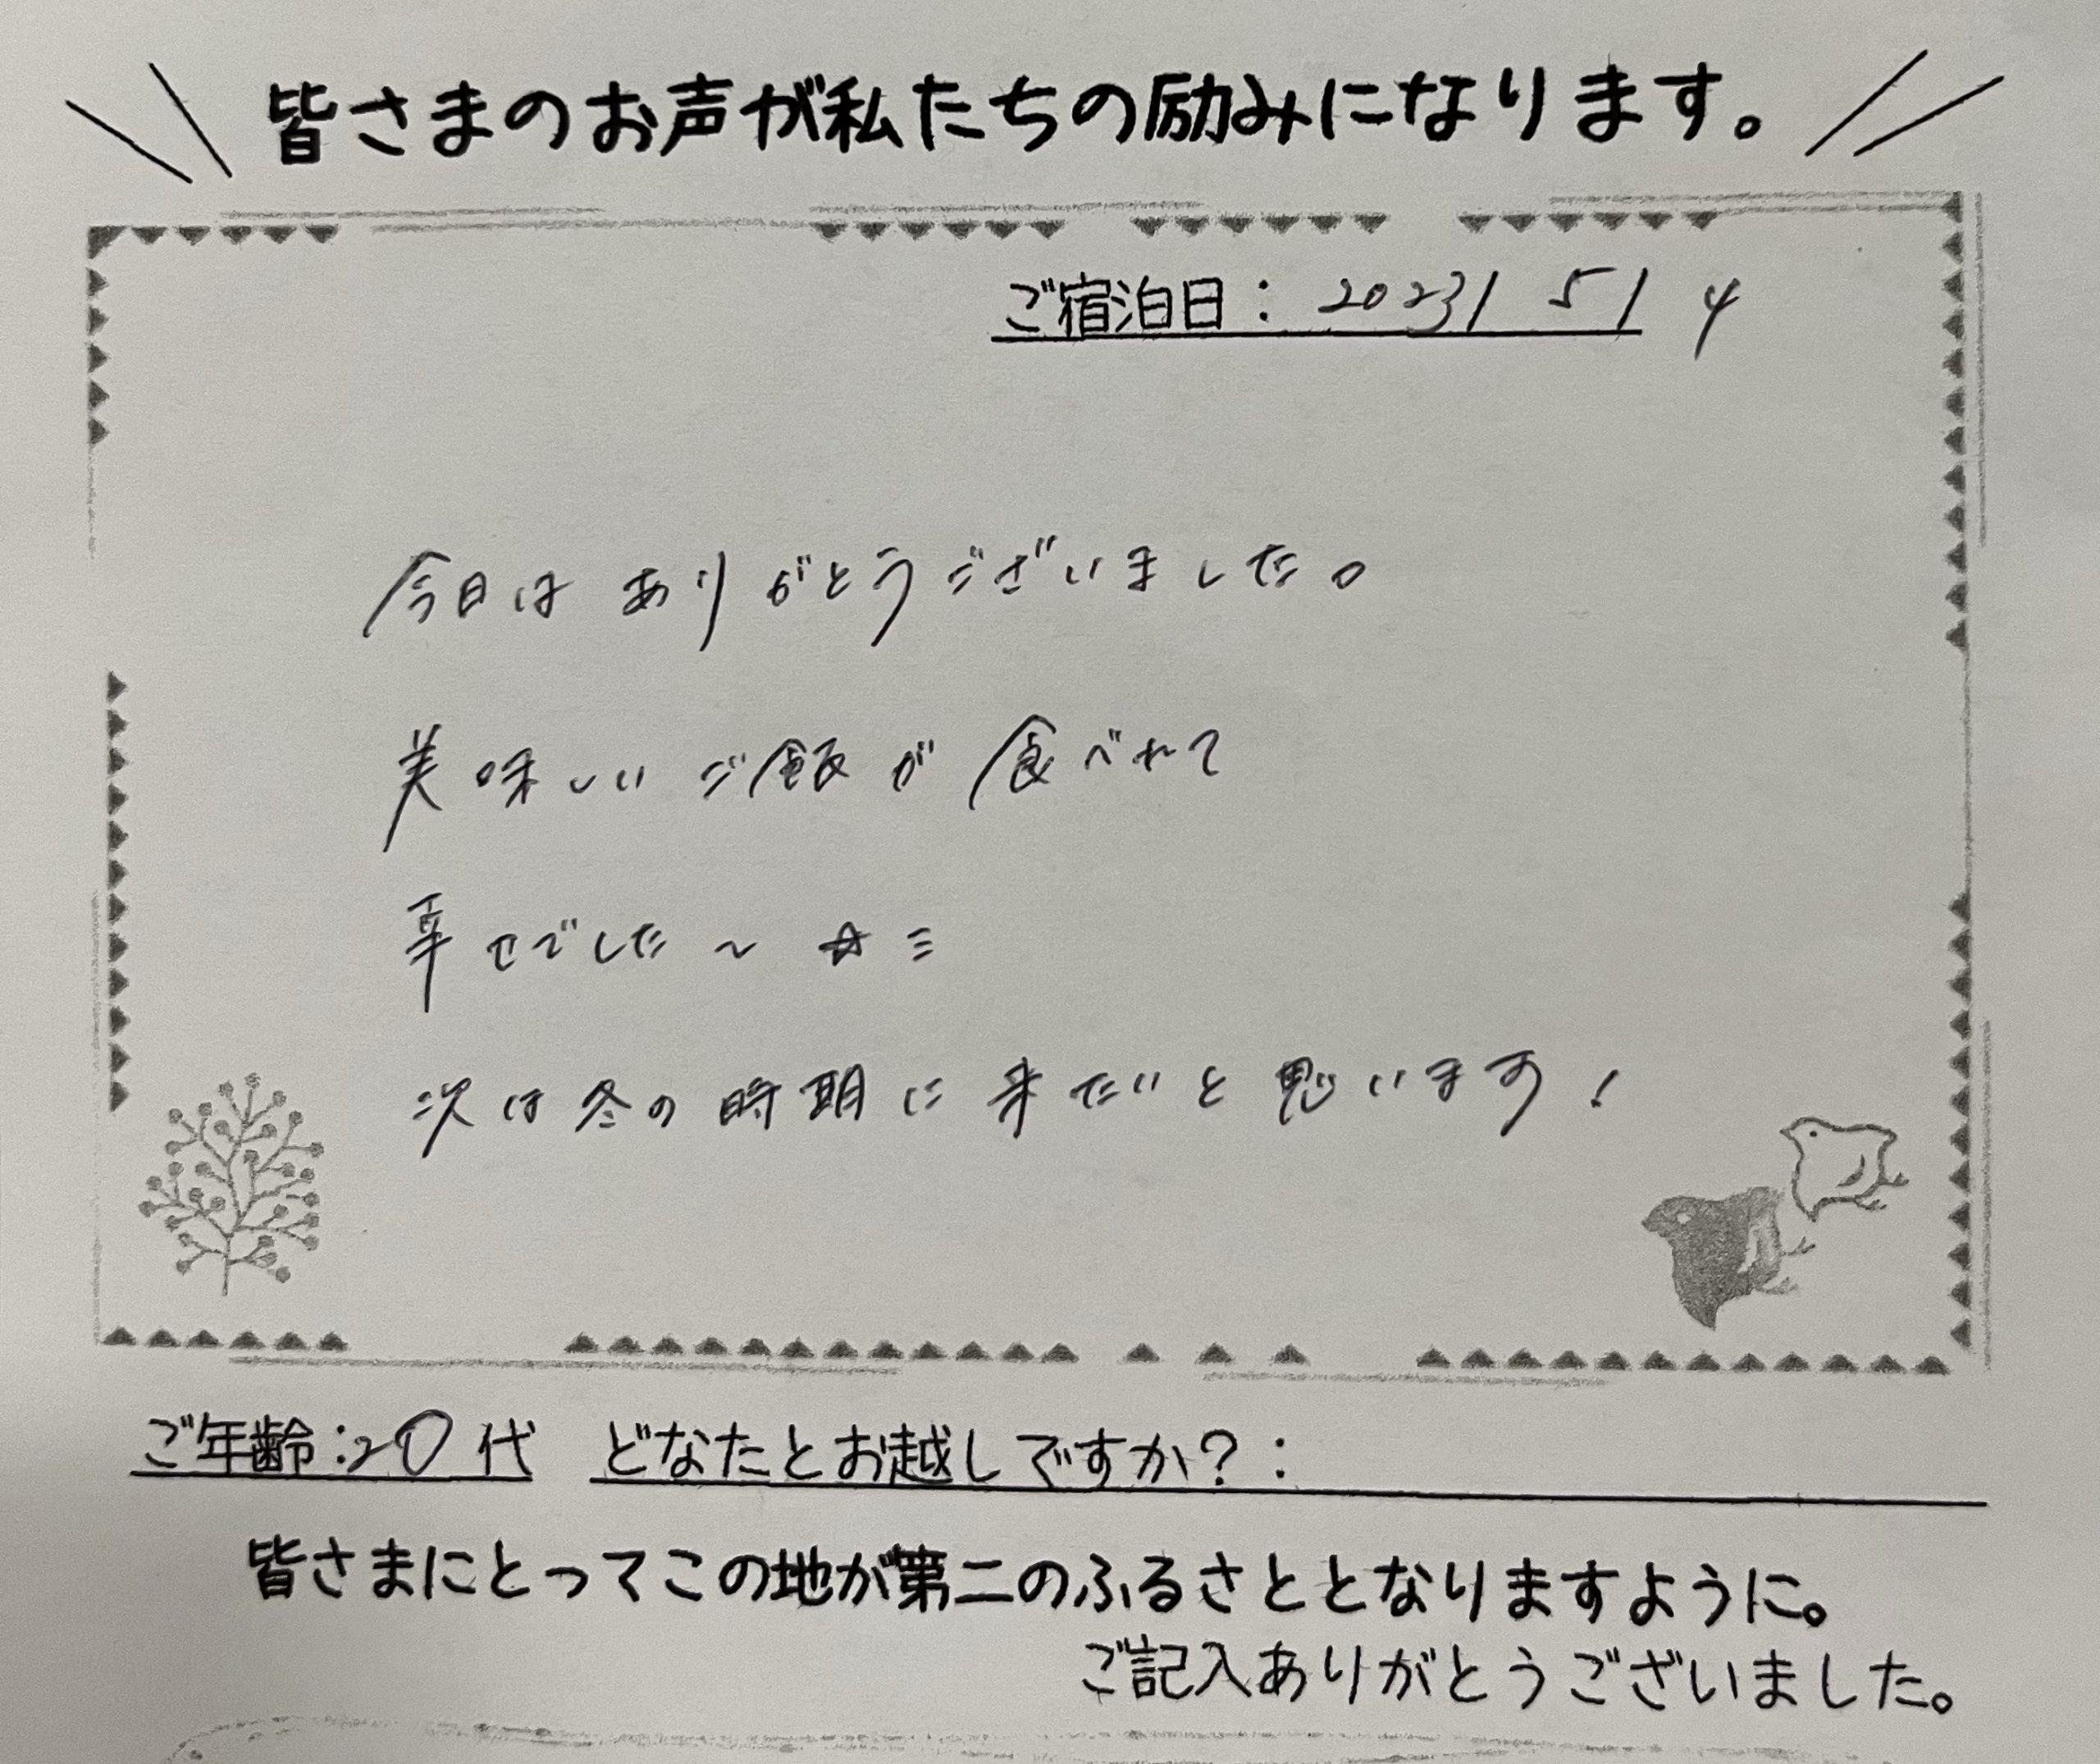 皆さまのお声が私たちの励みになります。
ご宿泊日：2023/ 5/ 4
今日はありがとうございました。
美味しいご飯が食べれて
幸せでした〜 ☆ミ
次は冬の時期に来たいと思います！
ご年齢：20代 どなたとお越しですか？：
皆さまにとってこの地が第二のふるさととなりますように。
ご記入ありがとうございました。